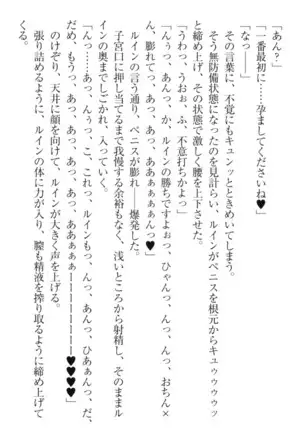 「あん?」
「一番最初に……孕ませてくださいね♥」
「なっ――」
その言葉に、不覚にもキュンッとときめいてしまう。
そう無防備状態になったのを見計らい、ルインがペニスを根元からキュゥゥゥゥッ
と締め上げ、その状態で激しく腰を上下させた。
「うわっ、うおぉ、ふ、不意打ちかよっ」
「んぅっ、あんっ、か、ルインの勝ちですよぉっ、ひゃんっ、んっ、んっ、おちん×
ん、膨れてっ、あっ、あっ、ああぁぁぁぁんっ♥」
ルインの言う通り、ペニスが膨れ――爆発した。
子宮口に押し当てるまで我慢する余裕もなく、浅いところから射精し、そのままル
インの奥までしごかれ、入っていく。
「んっ……あっ、んぅっ、こ、これっ、ルインもっ、んっ、あんっ、ひあぁんっ、だ、
だめ、もうっ、あっ、あっ、ああっ、ああぁぁぁ――♥♥♥♥」
のけぞり、天井に顔を向けて、ルインが大きく声を上げる。
張り詰めるように、ルインの体に力が入り、膣も精液を搾り取るように締め上げて
くる。